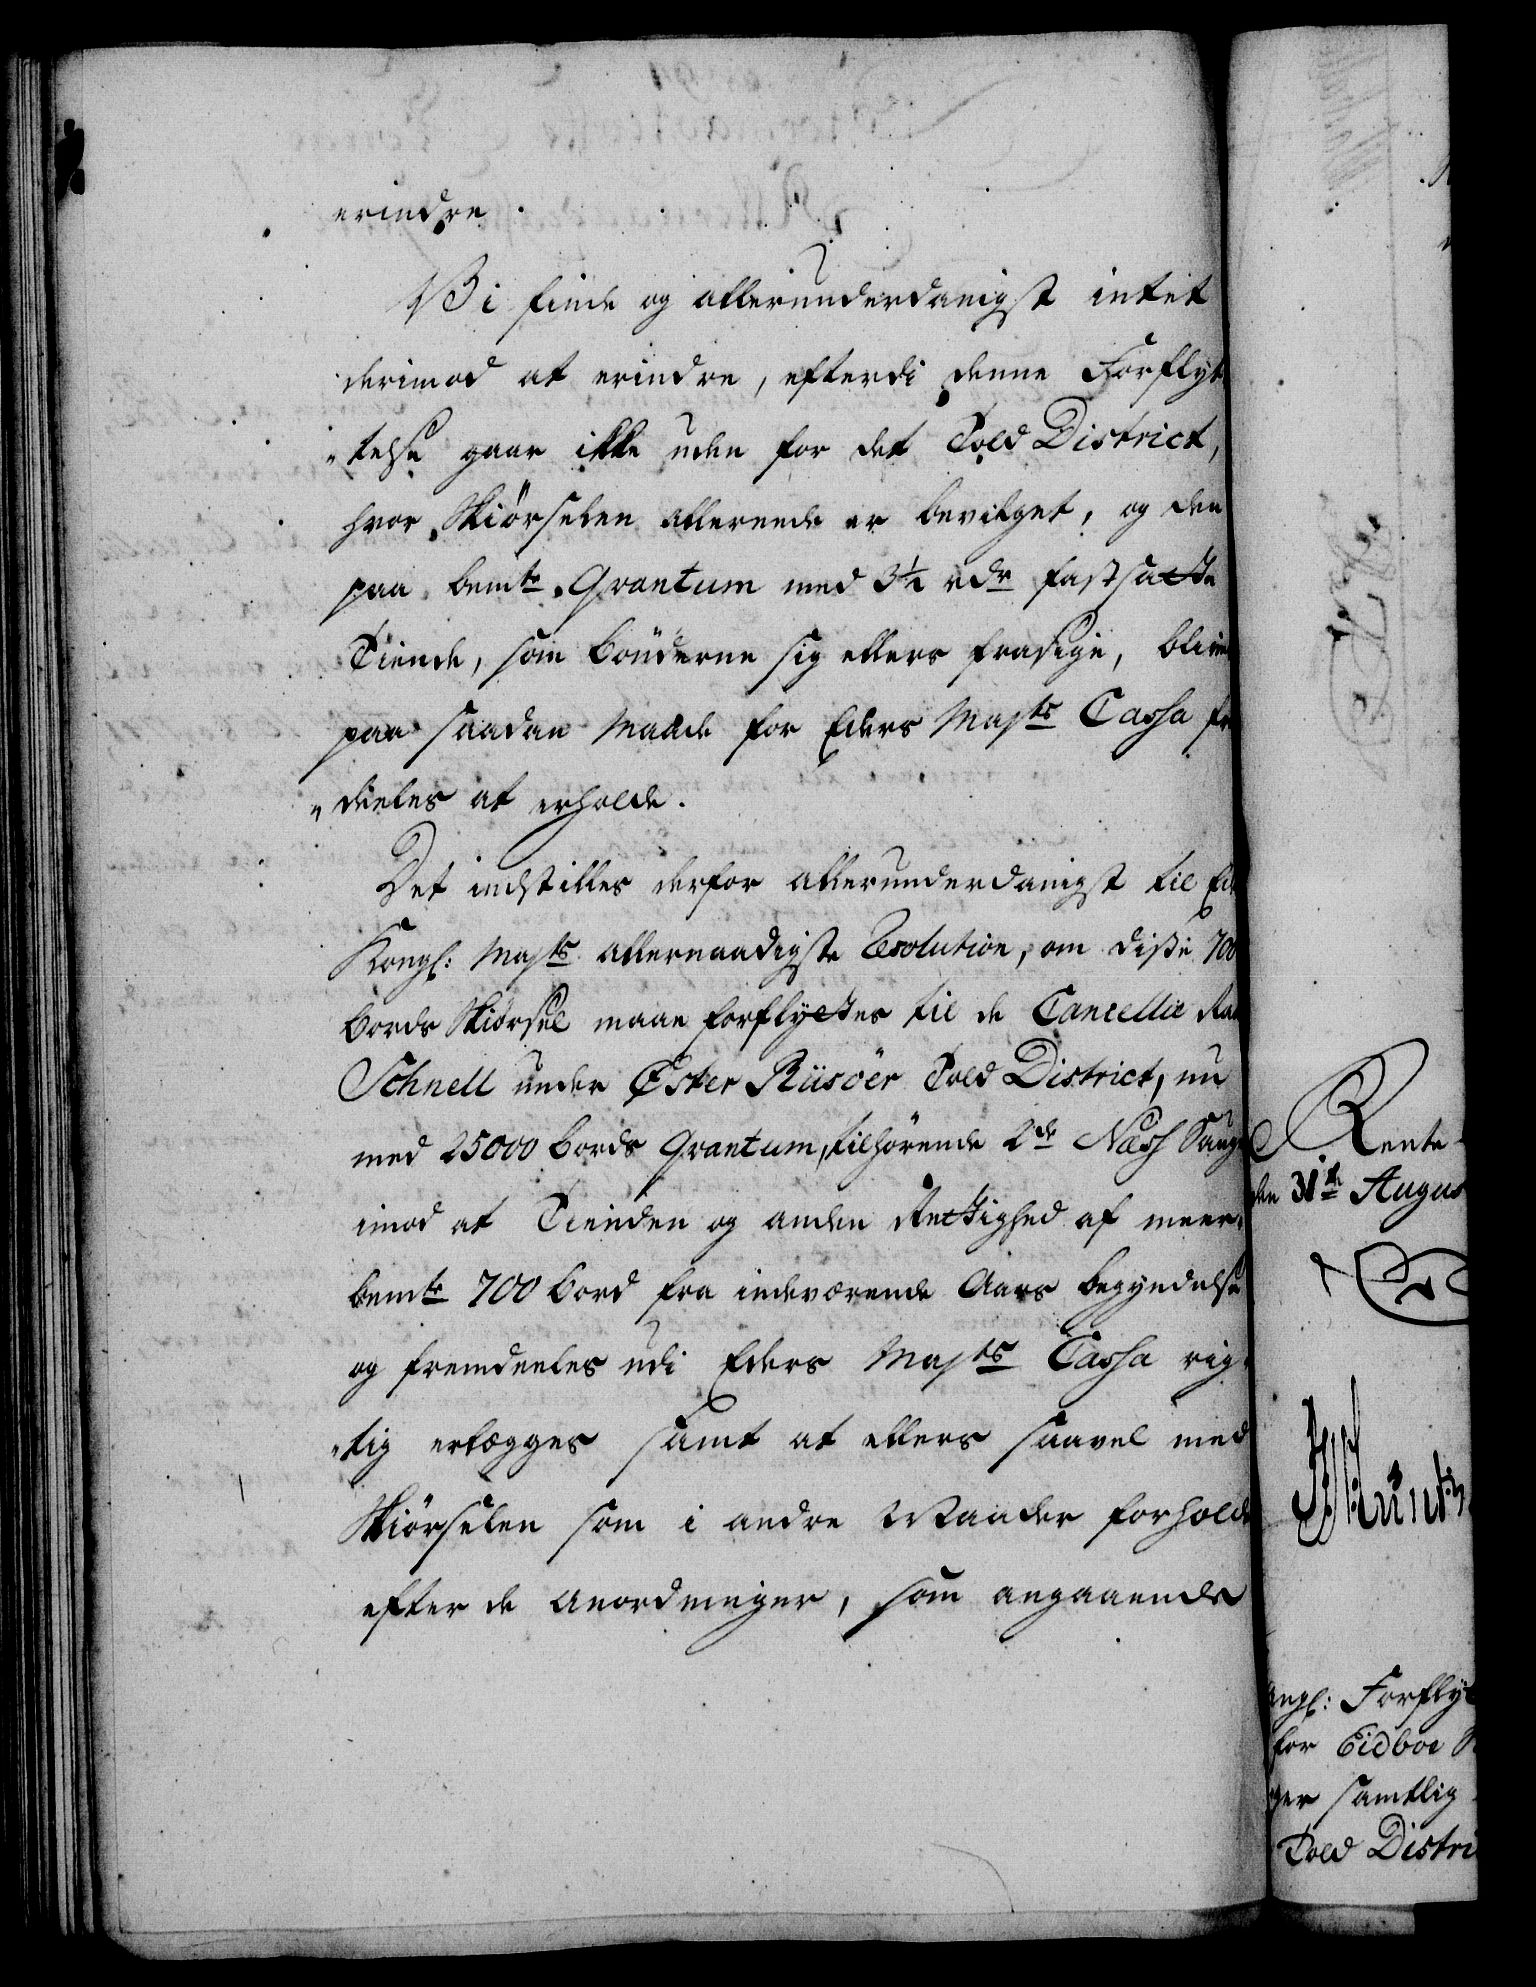 erindre.
Vi finde og allerunderdanigst intet
derimod at erindre, efterdi denne Forflyt
telse gaar ikke uden for det Told District,
hvor Skiørselen allerede er bevilget, og den
paa bemte. Qvantum med 3½ rdr fastsatte
Tiende, som Bönderne sig ellers frasige, blive
paa saadan Maade for Eders Majts Cassa fr
deeles at erholde.
Det indstilles derfor allerunderdanigst til Ed
Kongl: Majts allernaadigste Resolution, om disse 700
Bords Skiørsel maae forflyttes til de Cancellie Raa
Schnell under Öster Riisöer Told District, nu
med 25000 Bords Qvantum, tilhørende 2de Næss Saug
imod at Tienden og anden Rettighed af meer-
bemte 700 Bord fra indeværende Aars Begyndelse
og fremdeeles udi Eders Majts Cassa rig-
tig erlægges samt at ellers saavel med
Skiørselen som i andre Maader forholde
efter de Anordninger, som angaaende
Rente-
den 31te Augus
angl: Forflyt
for Eidboe
ger samtlig
Told Distri